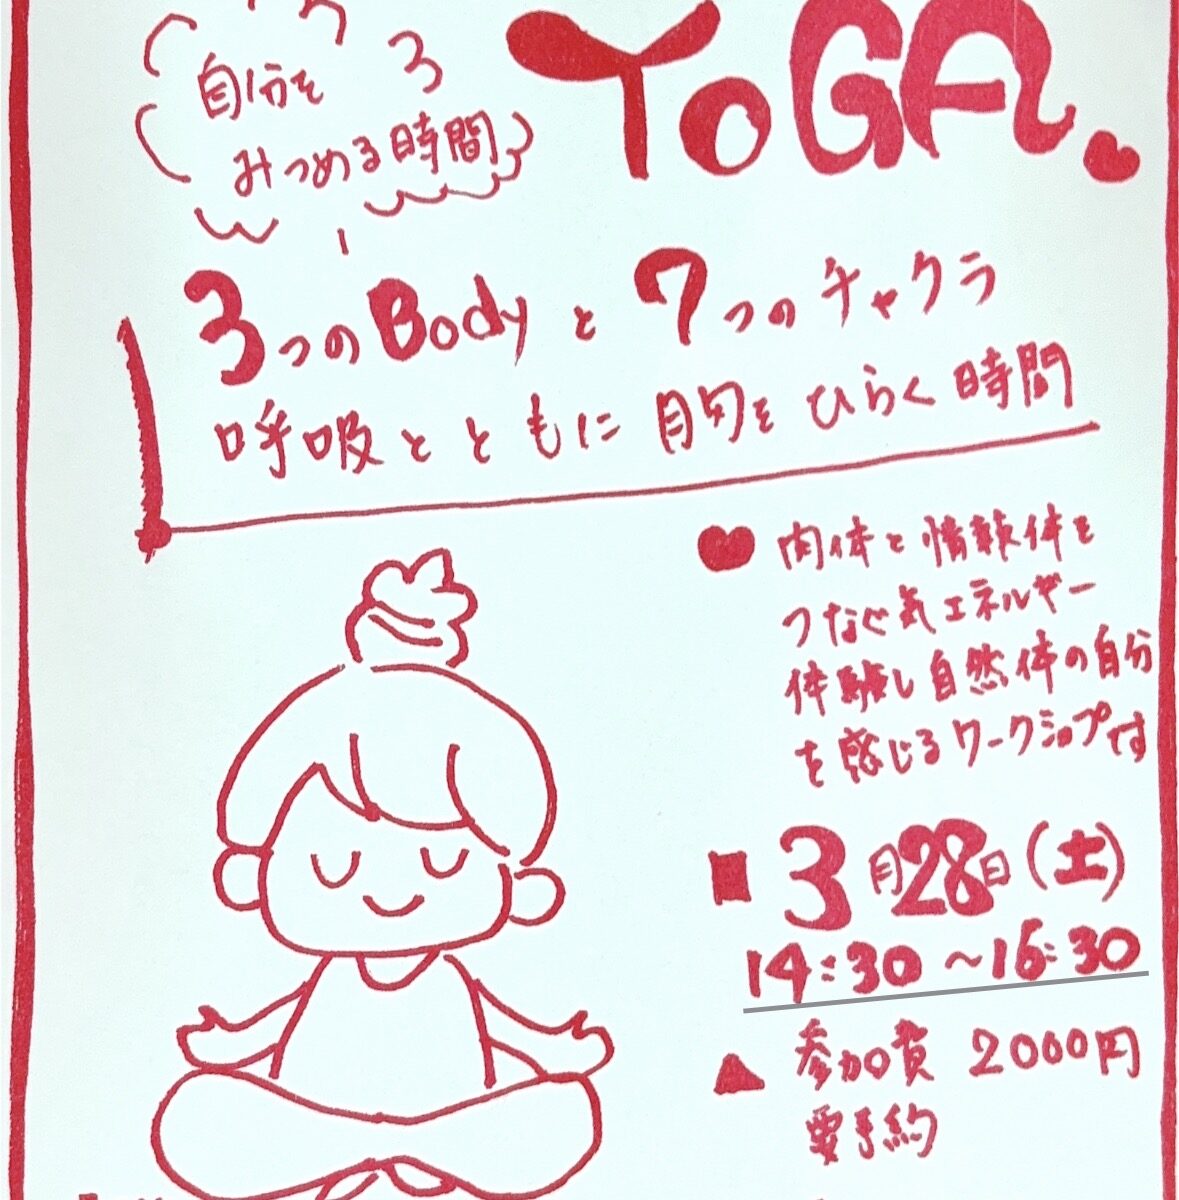 YOGA
自分を
みつめる時間
3つのBodyと7つのチャクラ
呼吸とともに自分をひらく時間
肉体と情報体を
つなぐ気エネルギー
体験し自然体の自分
を感じるワークショップです
3月28日(土)
14:30~16:30
参加費 2000円
要予約